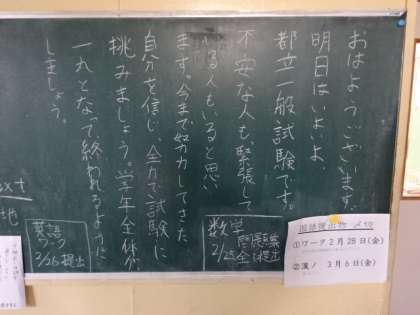 おはようございます。
明日はいよいよ
都立一般試験です。
不安な人も、緊張して
いる人もいると思い
ます。今まで努力してきた
自分を信じ、全力で試験に
挑みましょう。学年全体が
一丸となって終われるように
しましょう。
数学
問題集
2/25 全て提出
英語
ワーク
2/26 提出
国語提出物 〆切
①ワーク 2月28日(金)
②漢ノ 3月6日(金)